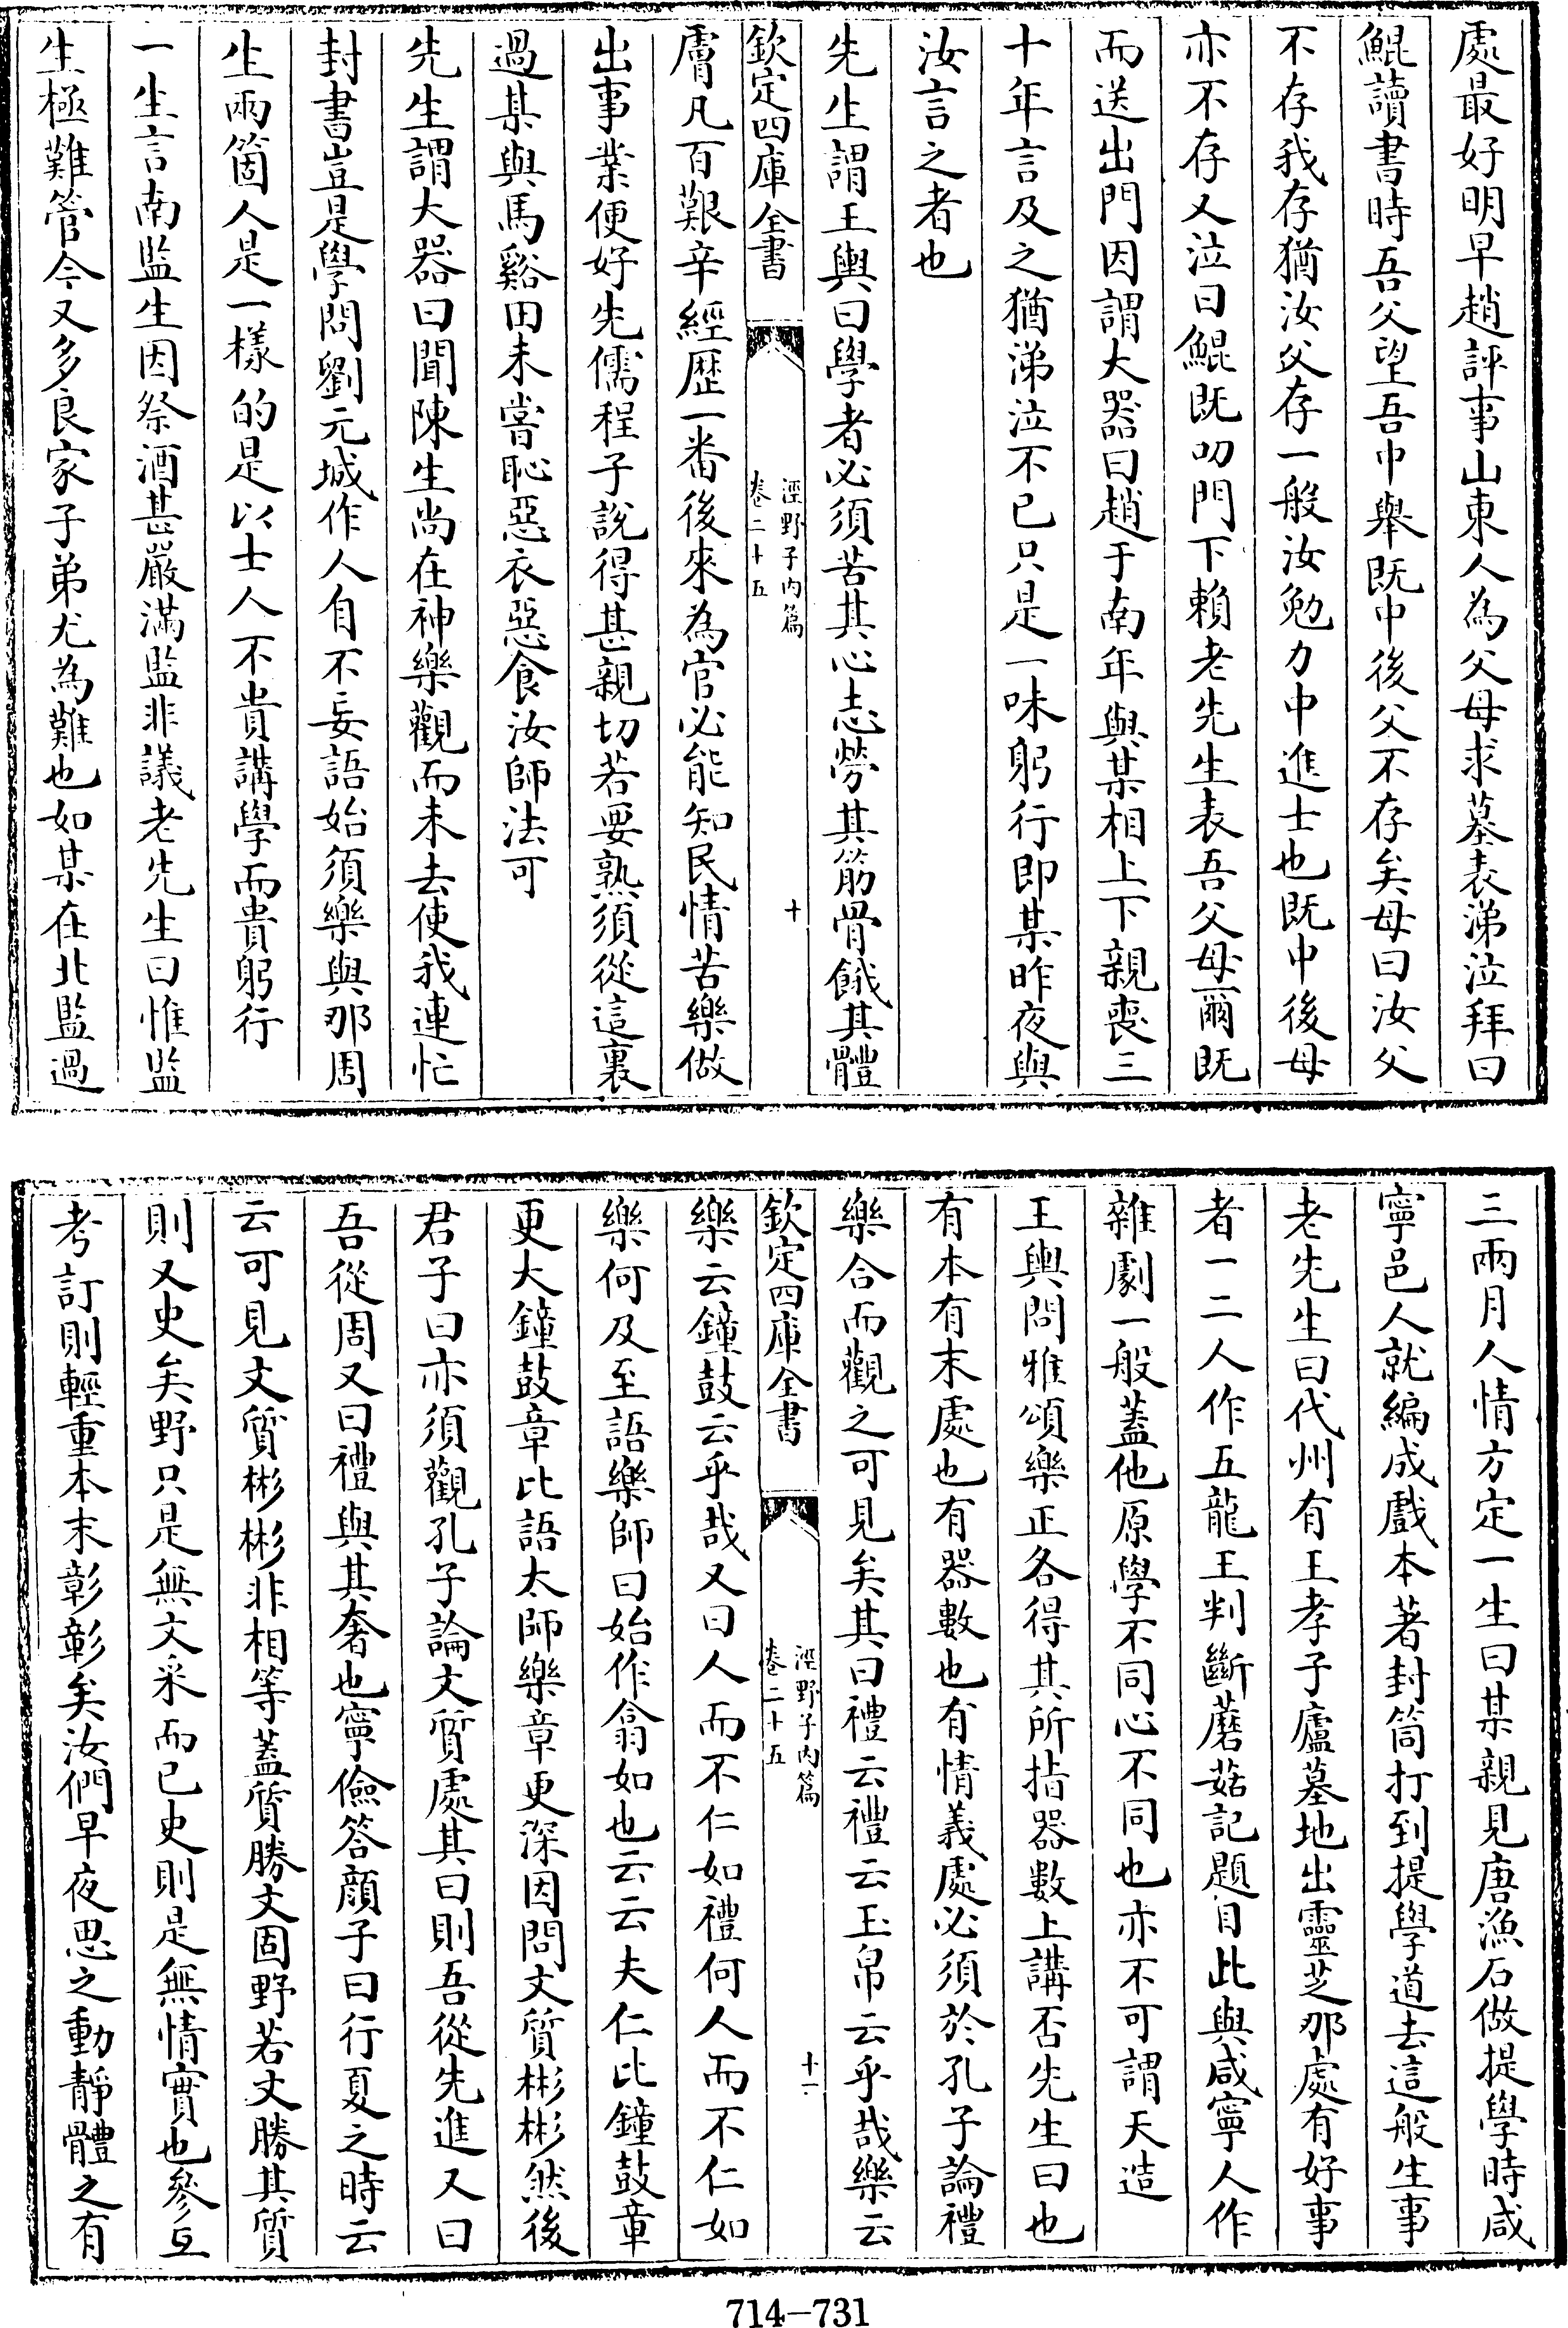 處最好明早趙評事山東人為父母求墓表涕泣拜曰
鯤讀書時吾父望吾中舉既中後父不存矣母曰汝父
不存我存猶汝父存一般汝勉力中進士也既中後母
亦不存又泣曰鯤既叨門下賴老先生表吾父母爾既
而送出門因謂大器曰趙于南年與某相上下親喪三
十年言及之猶涕泣不已只是一味躬行即某昨夜與
汝言之者也
先生謂王輿曰學者必須苦其心志勞其筋骨餓其體
欽定四庫全書
涇野子內篇
卷二十五
十
膚凡百艱辛經歷一番後來為官必能知民情苦樂做
出事業便好先儒程子說得甚親切若要熟須從這裏
過某與馬谿田未嘗恥惡衣惡食汝師法可
先生謂大器曰聞陳生尚在神樂觀而未去使我連忙
封書豈是學問劉元城作人自不妄語始須樂與那周
生兩箇人是一樣的是以士人不貴講學而貴躬行
一生言南監生因祭酒甚嚴滿監非議老先生曰惟監
生極難管今又多良家子弟尤為難也如某在北監過
三兩月人情方定一生曰某親見唐漁石做提學時咸
寧邑人就編成戲本著封筒打到提學道去這般生事
老先生曰代州有王孝子廬墓地出靈芝那處有好事
者一二人作五龍王判斷蘑菇記題目此與咸寧人作
雜劇一般蓋他原學不同心不同也亦不可謂天造
王輿問雅頌樂正各得其所指器數上講否先生曰也
有本有末處也有器數也有情義處必須於孔子論禮
樂合而觀之可見矣其曰禮云禮云玉帛云乎哉樂云
欽定四庫全書
涇野子內篇
卷二十五
十一
樂云鐘鼓云乎哉又曰人而不仁如禮何人而不仁如
樂何及至語樂師曰始作翕如也云云夫仁比鐘鼓章
更大鐘鼓章比語太師樂章更深因問文質彬彬然後
君子曰亦須觀孔子論文質處其曰則吾從先進又曰
吾從周又曰禮與其奢也寧儉答顏子曰行夏之時云
云可見文質彬彬非相等蓋質勝文固野若文勝其質
則又史矣野只是無文采而已史則是無情實也參互
考訂則輕重本末彰彰矣汝們早夜思之動靜體之有
714-731